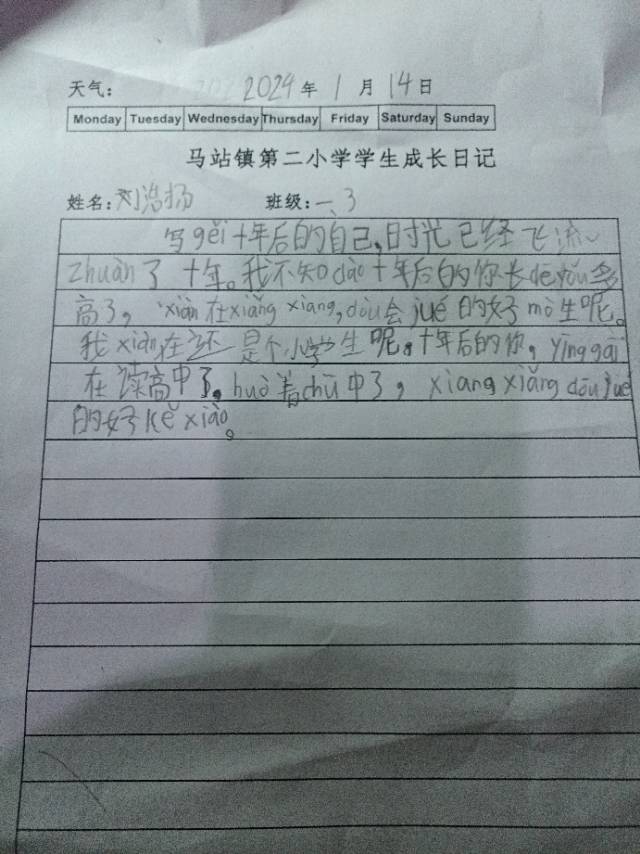 天气: 2024年1月14日
Monday Tuesday Wednesday Thursday Friday Saturday Sunday
马站镇第二小学学生成长日记
姓名:刘浩扬 班级:一、3
写gěi十年后的自己,时光已经飞流
zhuàn了十年。我不知dào十年后的你长dēyǒu多
高了,xiàn在xiǎng xiang,dōu会jué的好mò生呢。
我xiàn在还是个小学生呢。十年后的你,yīnggāi
在读高中了。huò者chū中了,xiang xiǎng dōu jué
的好kě xiào。